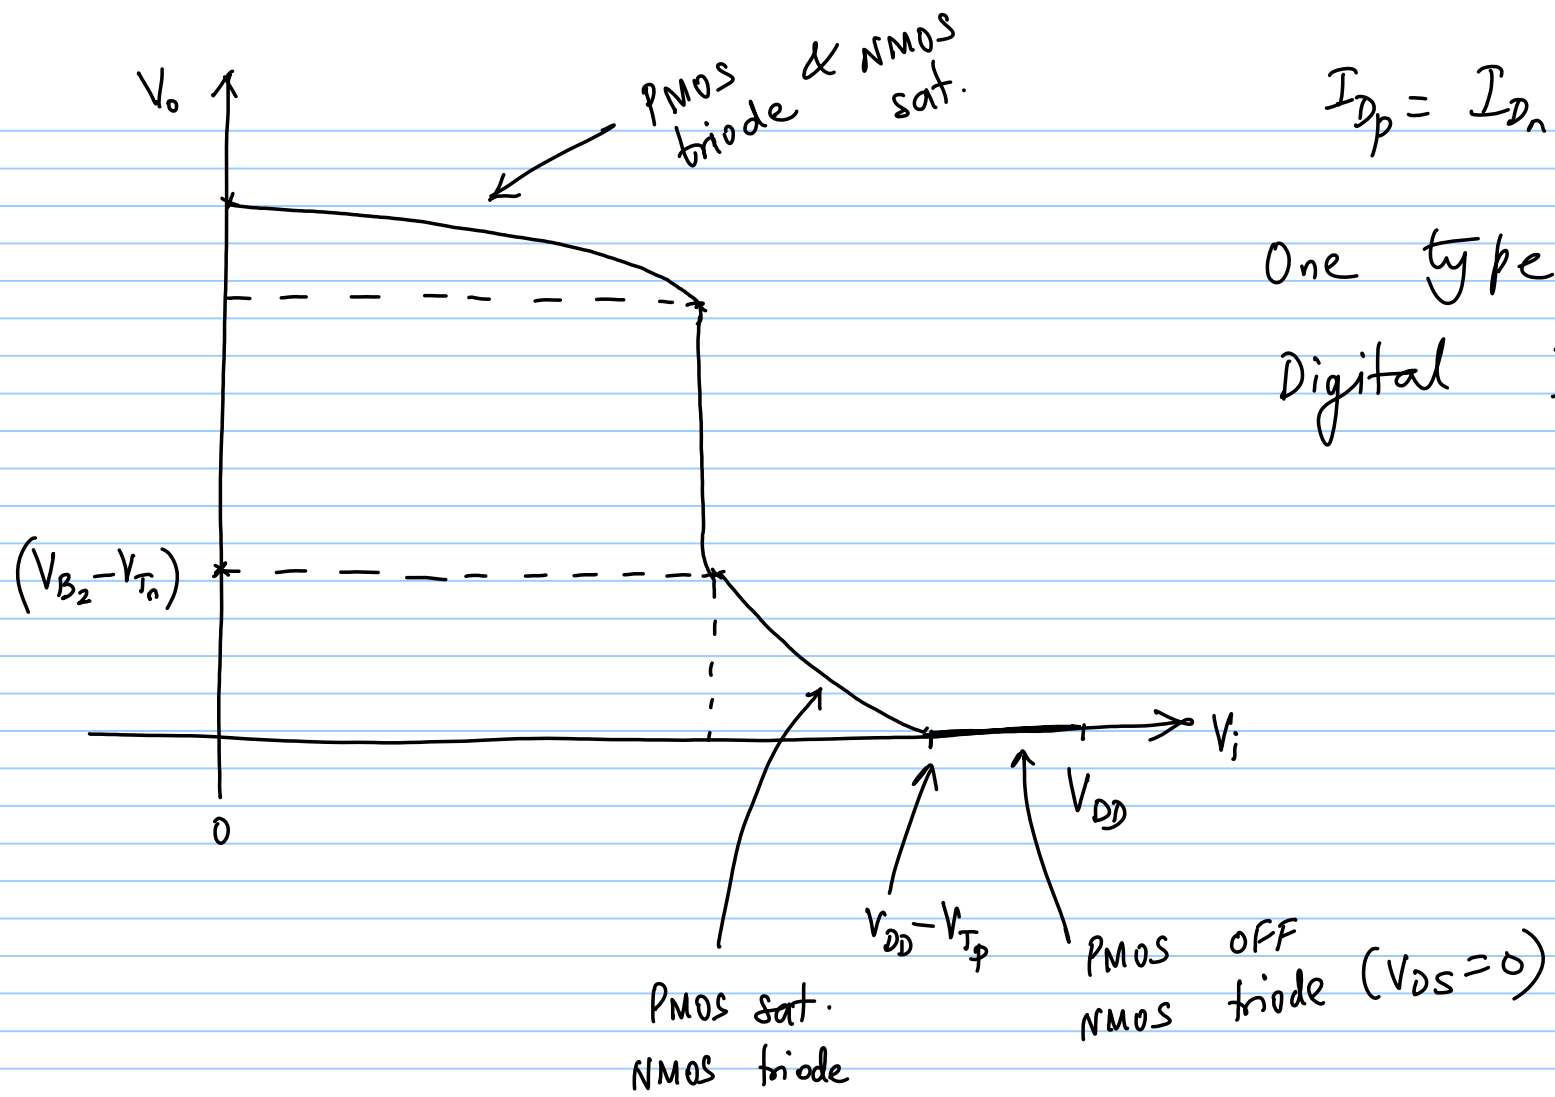 V₀
PMOS & NMOS
triode sat.
I_Dp = I_Dn
One type
Digital
(V_B₂ − V_Tn)
V_i
V_DD
0
V_DD − V_Tp
PMOS OFF
NMOS triode (V_DS = 0)
PMOS sat.
NMOS triode